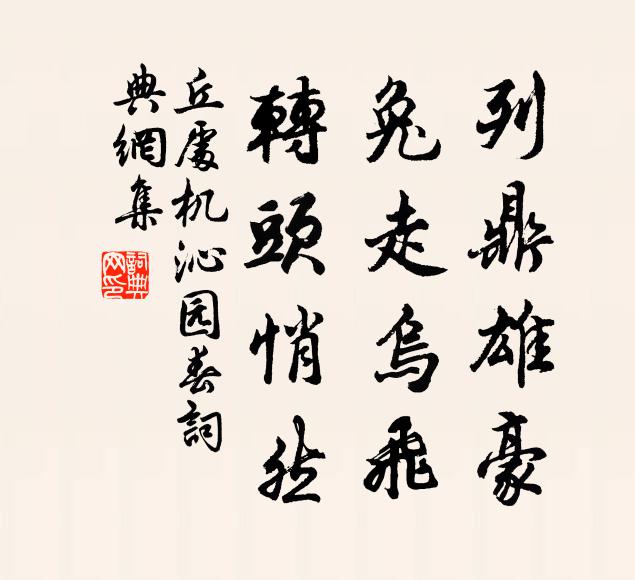 列鼎雄豪
兔走烏飛
轉頭悄然
丘處机沁园春詞
典網集
詞典
网印